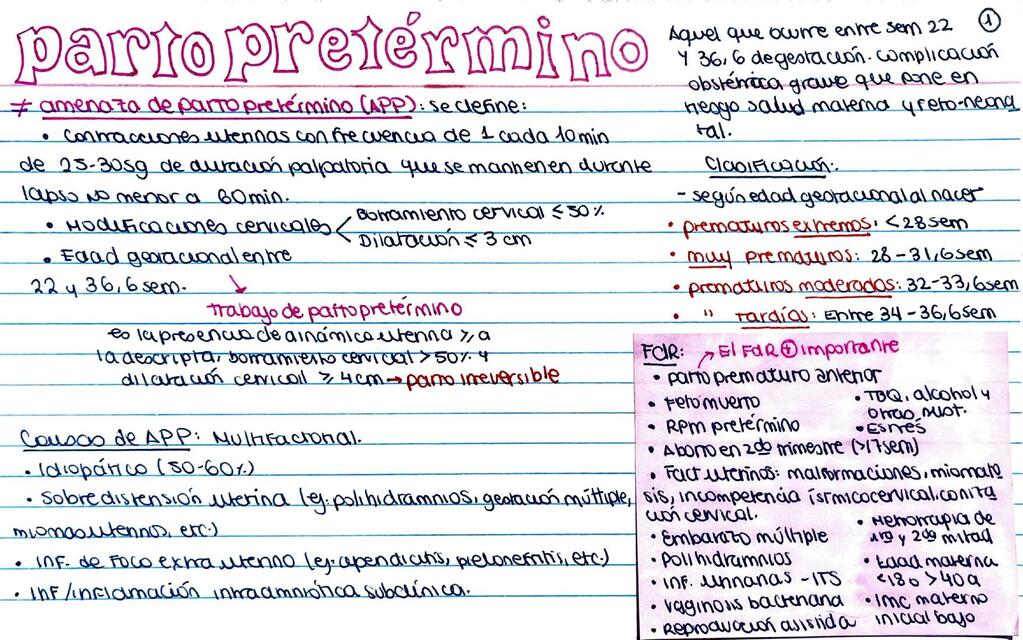 parto pretérmino
≠ amenaza de parto pretérmino (APP): se define:
• Contracciones uterinas con frecuencia de 1 cada 10min
de 25-30sg de duración palpatoria que se mantienen durante
lapso no menor a 60min.
• Modificaciones cervicales
Borramiento cervical ≤ 50%
Dilatación ≤ 3 cm
• Edad gestacional entre
22 y 36,6 sem.
trabajo de parto pretérmino
es la presencia de dinámica uterina ≥ a
la descripta, borramiento cervical >50% y
dilatación cervical ≥ 4cm → parto irreversible
Causas de APP: Multifactorial.
• Idiopático (50-60%)
• Sobredistensión uterina (ej: polihidramnios, gestación múltiple,
miomas uterinos, etc.)
• Inf. de foco extrauterino (ej: apendicitis, pielonefritis, etc.)
• Inf/inflamación intraamniótica subclínica.
1
Aquel que ocurre entre sem 22
y 36,6 de gestación. complicación
obstétrica grave que pone en
riesgo salud materna y feto-neona
tal.
Clasificación:
- según edad gestacional al nacer
• prematuros extremos: <28sem
• muy prematuros: 28-31,6sem
• prematuros moderados: 32-33,6sem
• " tardíos: Entre 34-36,6sem
FdR: → El FdR ⊕ importante
• parto prematuro anterior
• Feto muerto
• RPM pretérmino
• TBQ, alcohol y
otras sust.
• Estrés
• Aborto en 2do trimestre (>17sem)
• Fact uterinos: malformaciones, miomato
sis, incompetencia ístmicocervical, coniza
ción cervical.
• Embarazo múltiple
• Polihidramnios
• Inf. urinarias - ITS
• Vaginosis bacteriana
• Reproducción asistida
• Hemorragia de
1ra y 2da mitad
• Edad materna
<18 o >40a
• IMC materno
inicial bajo